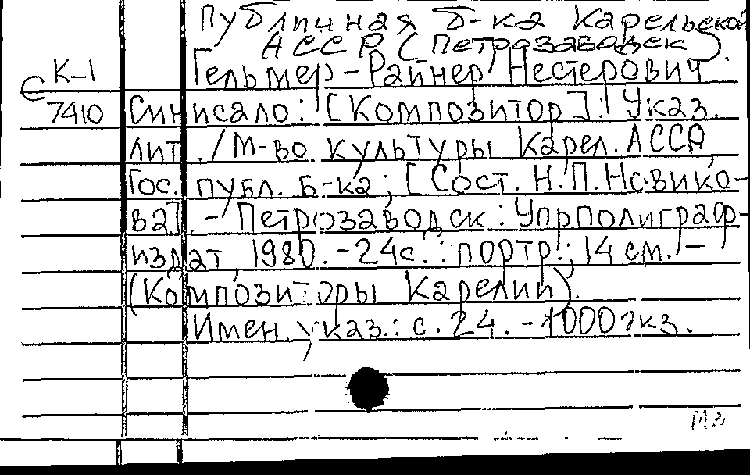 Публичная б-ка Карельской
АССР (Петрозаводск)
К-1 Гельмер-Райнер Нестерович
С 7410 Синисало: [Композитор]: Указ.
лит. / М-во культуры Карел. АССР,
Гос. публ. б-ка; [Сост. Н.П.Новико-
ва]. - Петрозаводск: Упрполиграф-
издат, 1980. - 24с.: портр.; 14 см. -
(Композиторы Карелии).
Имен. указ.: с. 24. - 1000экз.